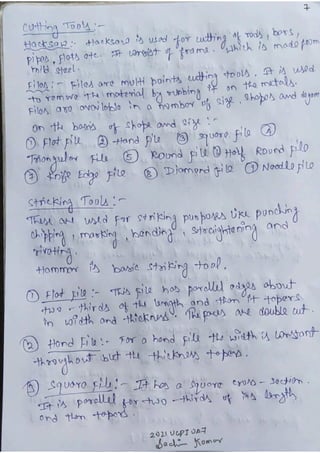 7
Cutting Tools :-
Hacksaw:- Hacksaw is used for cutting of rods, bars,
pipes, flats etc. It consist of frame. which is made from
mild steel.
Files :- Files are multi points cutting tools. It is used
to remove the material by rubbing it on the metals.
Files are available in a number of size. Shapes and
on the basis of shape and size :-
① Flat file ② Hand file ③ square file ④
Triangular File ⑤ Round file ⑥ Half Round file
⑦ Knife Edge file ⑧ Diamond file ⑨ Needle file
Stricking Tools :-
These are used for striking purposes like punching
chipping, marking, banding, straightening and
rivating.
Hammer is basic striking tool.
① Flat file :- This file has parallel edges about
two - thirds of the length and than it tapers
in width and thickness. The faces are double cut.
② Hand File :- For a hand file the width is constant
throughout but the thickness tapers.
③ Square file :- It has a square cross - section.
It is parallel for two - thirds of its length
and than tapers.
2021UGPI007
Sachin Kumar